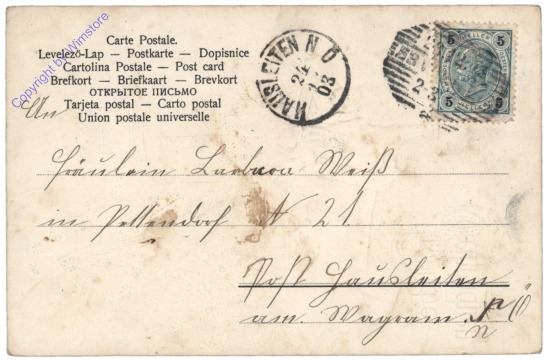 Carte Postale.
Levelező-Lap — Postkarte — Dopisnice
Cartolina Postale — Post card
Brefkort — Briefkaart — Brevkort
ОТКРЫТОЕ ПИСЬМО
Tarjeta postal — Carto postal
Union postale universelle
Copyright by Wimstore
HAUSLEITEN N Ö
03
5 5
5 5
An
Fräulein Barbara Weiß
in Pettendorf N 21
Post Hausleiten
am Wagram